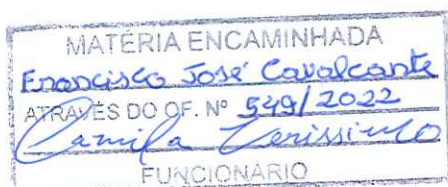 MATÉRIA ENCAMINHADA
Francisco José Cavalcante
ATRAVÉS DO OF. Nº 549/2022
Camila Verissimo
FUNCIONÁRIO